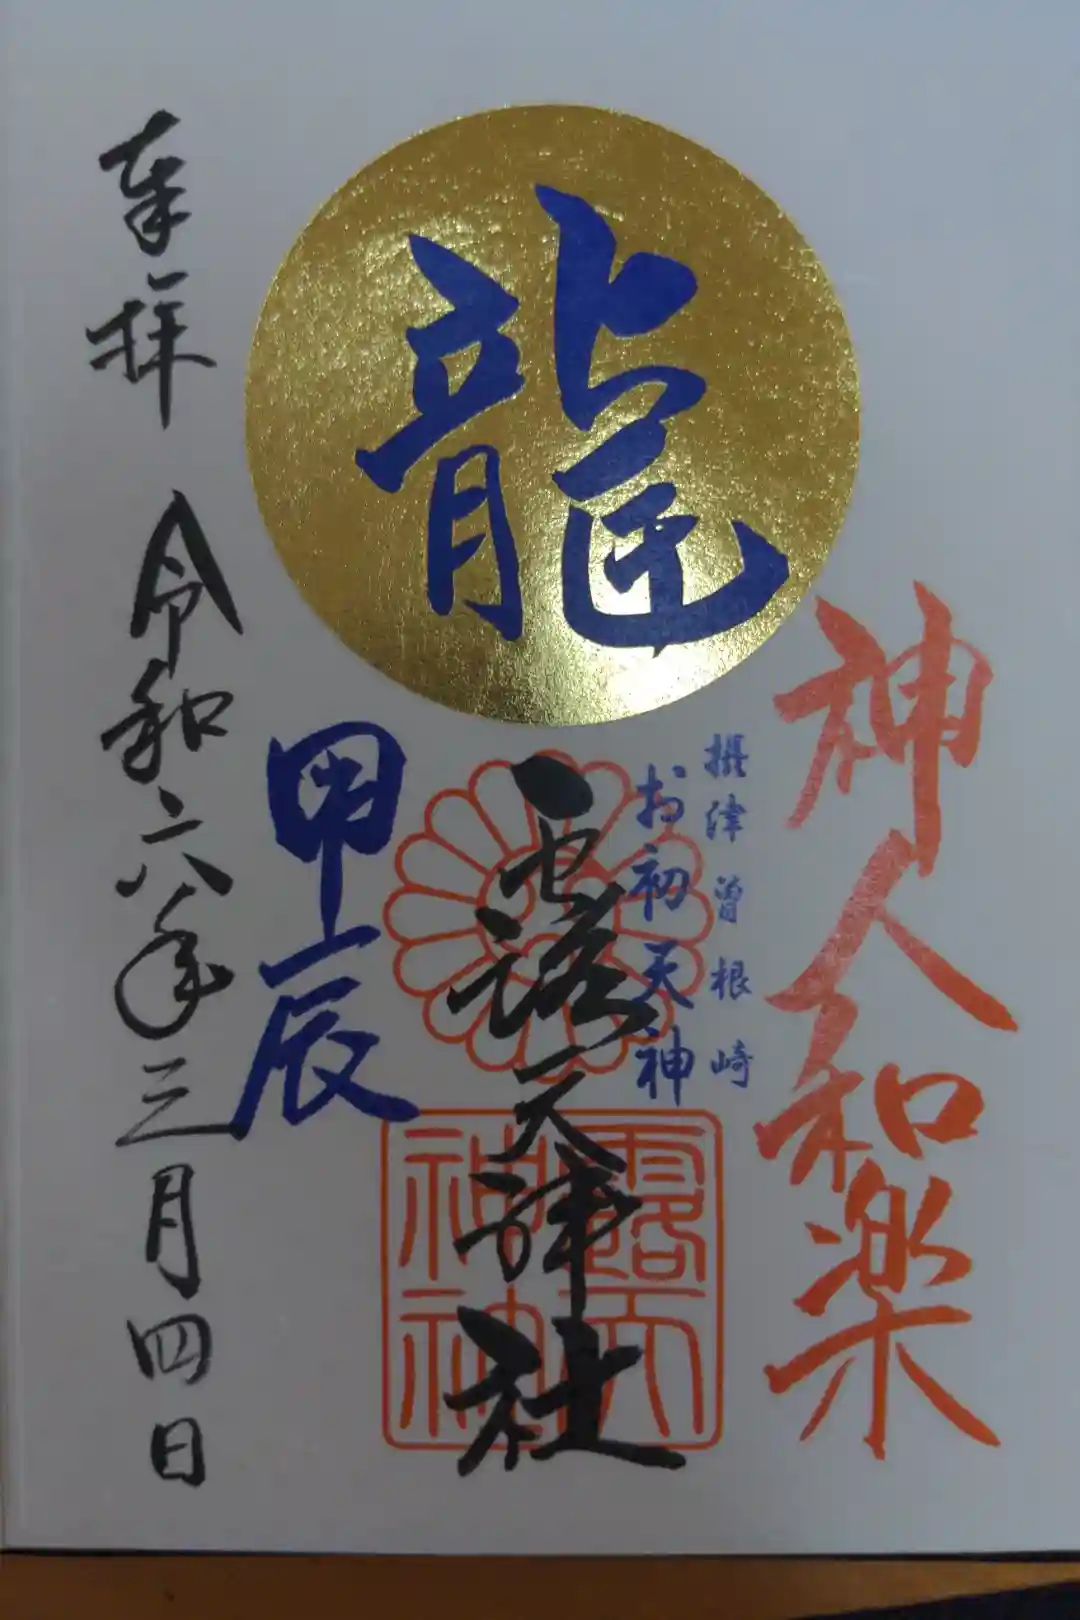 龍
神人和楽
摂津曽根崎
お初天神
露天神社
甲辰
奉拝 令和六年三月四日